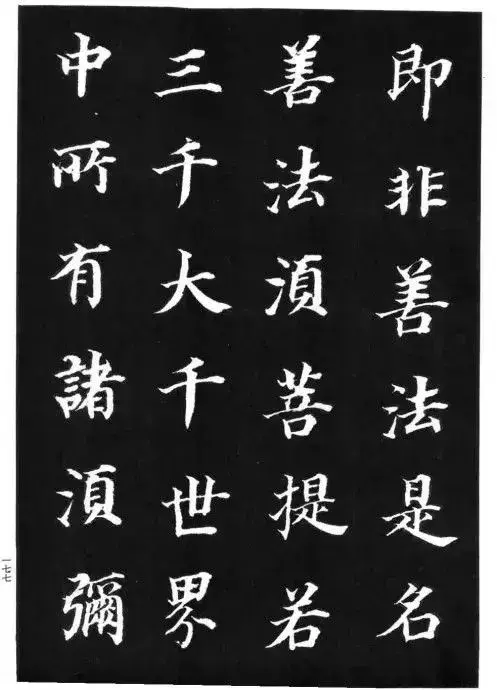 即非善法是名
善法湏菩提若
三千大千世界
中所有諸湏彌
一七七